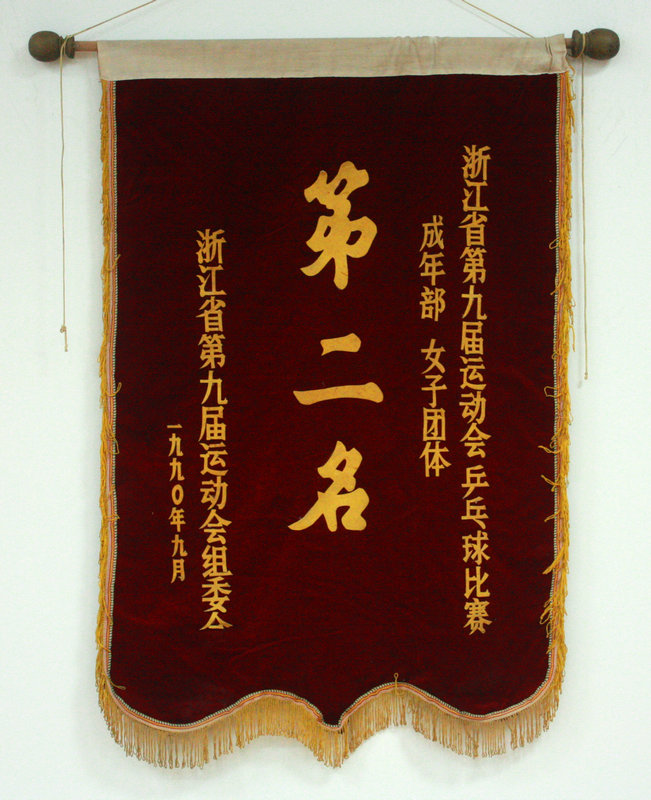 浙江省第九届运动会乒乓球比赛
成年部 女子团体
第二名
浙江省第九届运动会组委会
一九九〇年九月